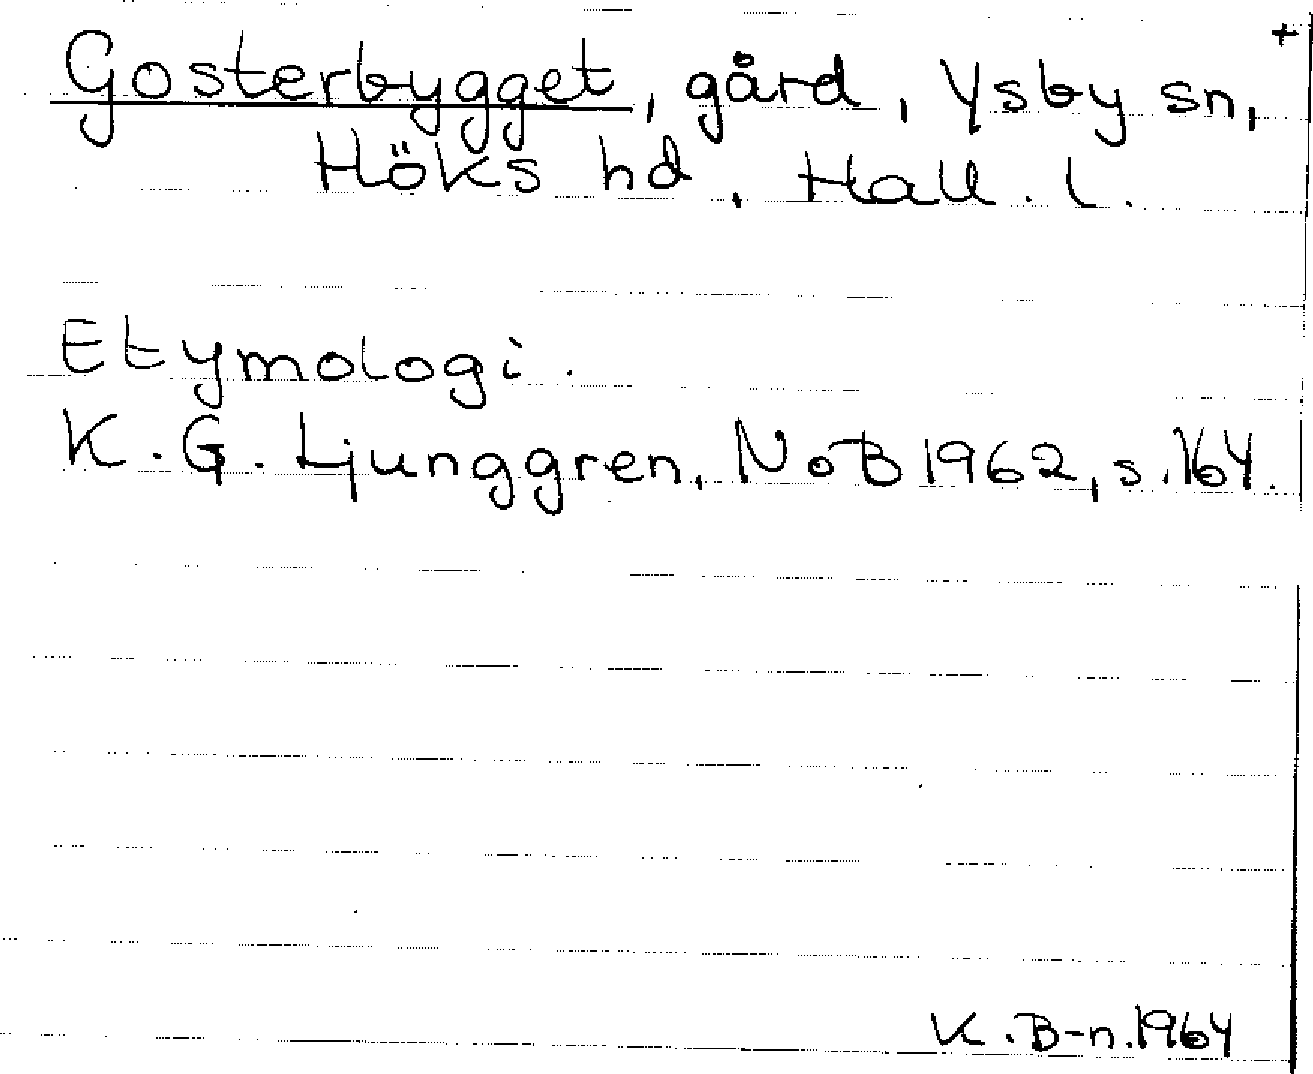 +
Gosterbygget, gård, Ysby sn,
Höks hd, Hall. l.
Etymologi.
K. G. Ljunggren, NoB 1962, s. 164.
K. B-n. 1964